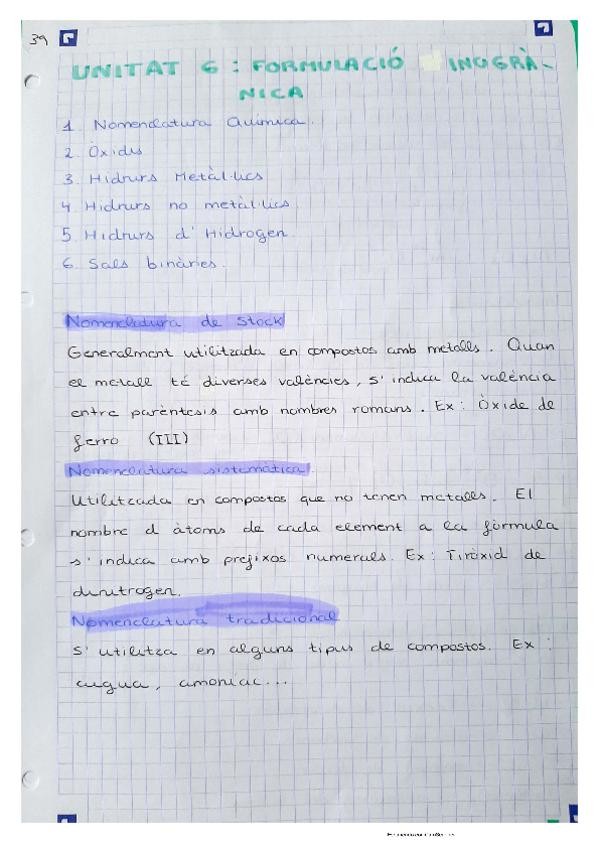 39
UNITAT 6: FORMULACIÓ INOGRÀ-
NICA
1. Nomenclatura Química.
2. Òxids
3. Hidrurs Metàl·lics
4. Hidrurs no metàl·lics.
5. Hidrurs d'Hidrogen
6. Sals binàries.
Nomenclatura de Stock
Generalment utilitzada en compostos amb metalls. Quan
el metall té diverses valències, s'indica la valència
entre parèntesis amb nombres romans. Ex: Òxide de
ferro (III)
Nomenclatura sistemàtica
Utilitzada en compostos que no tenen metalls. El
nombre d àtoms de cada element a la fórmula
s'indica amb prefixos numerals. Ex: Tiròxid de
dinitrogen.
Nomenclatura tradicional
S'utilitza en alguns tipus de compostos. Ex:
augua, amoníac...